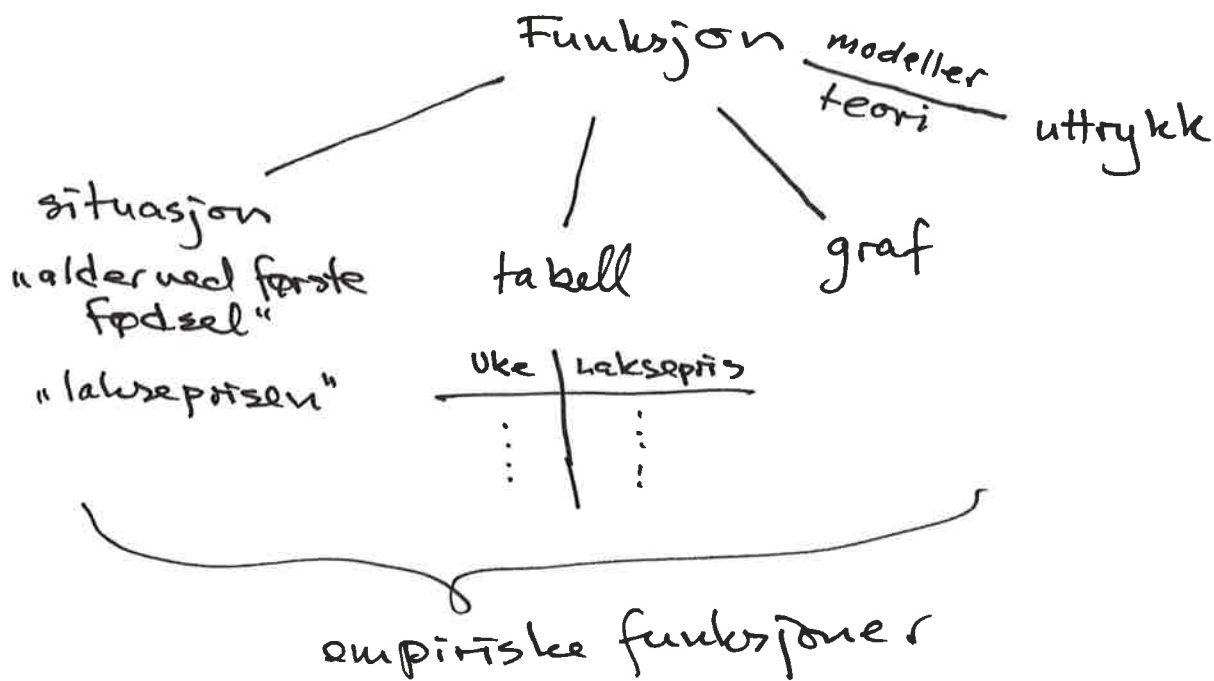 Funksjon
modeller
teori
uttrykk
situasjon
"alder ved første
fødsel"
"lakseprisen"
tabell
graf
Uke | Laksepris
empiriske funksjoner